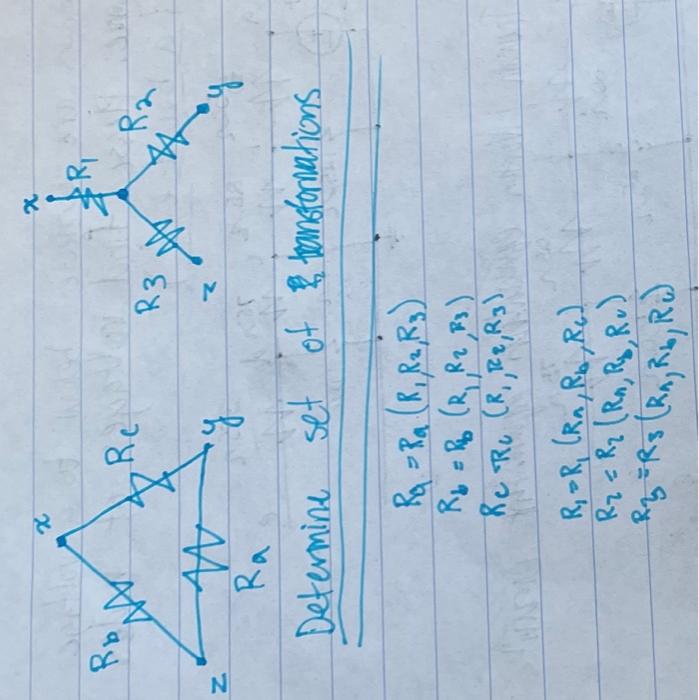 x
R1
R2
R3
y
z
x
Rb
Rc
Ra
z
y
Determine set of transformations
Ra = Ra (R1, R2, R3)
Rb = Rb (R1, R2, R3)
Rc = Rc (R1, R2, R3)
R1 = R1 (Ra, Rb, Rc)
R2 = R2 (Ra, Rb, Rc)
R3 = R3 (Ra, Rb, Rc)